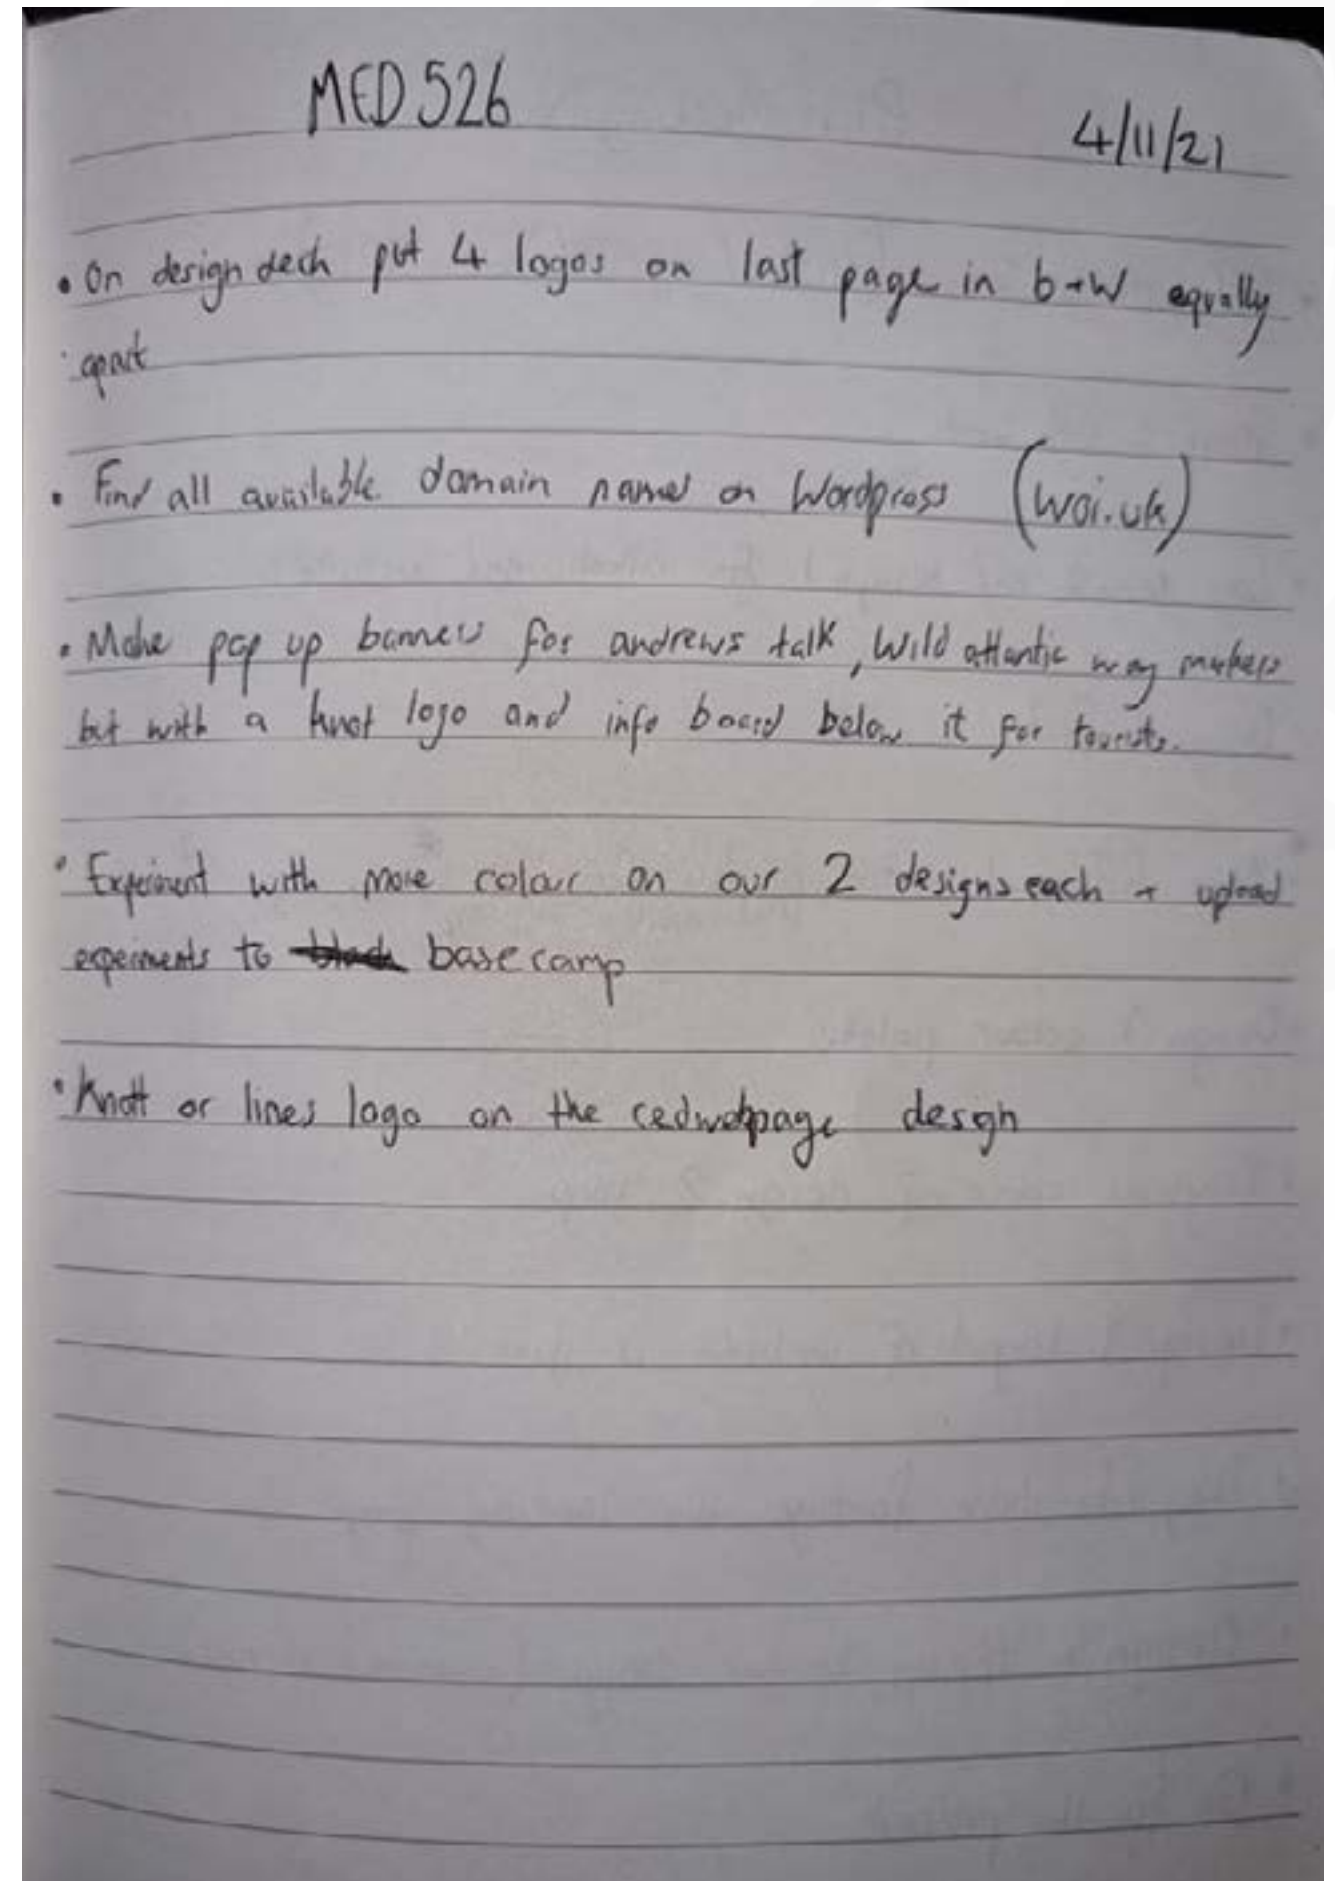 MED 526
4/11/21
• On design deck put 4 logos on last page in b+w equally
apart
• Find all available domain names on Wordpress (woi.uk)
• Make pop up banners for andrews talk, Wild atlantic way markers
but with a knot logo and info board below it for tourists.
• Experiment with more colour on our 2 designs each + upload
experiments to basecamp
• Knott or lines logo on the cedwebpage desgn